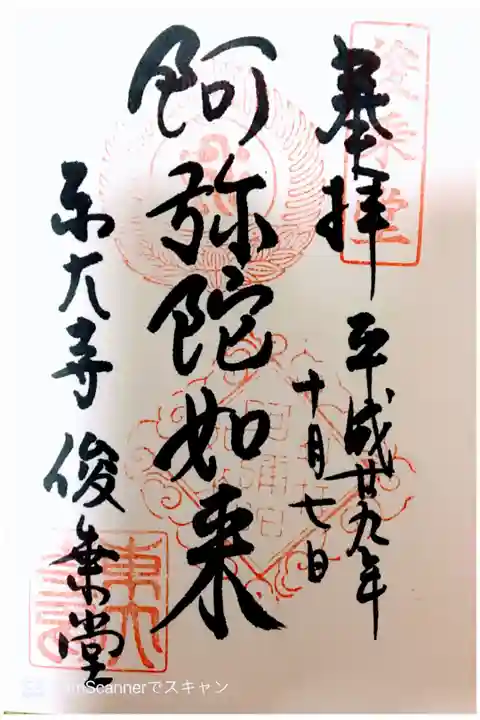 奉拝
俊乗堂
平成廿九年
十月七日
阿弥陀如来
東大寺 俊乗堂
CamScannerでスキャン